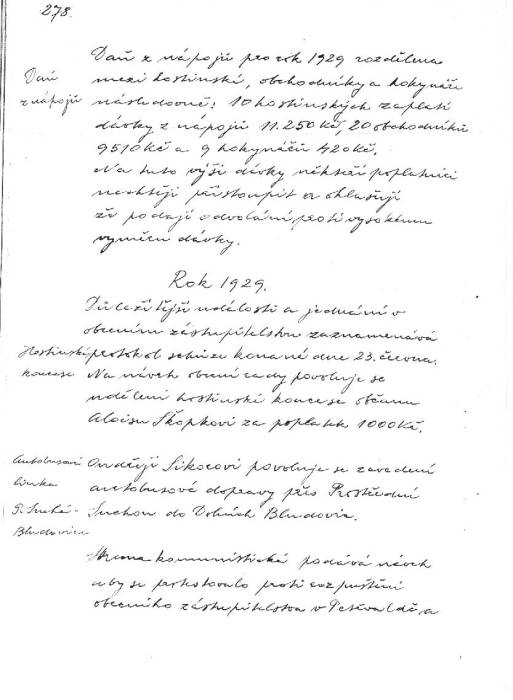 278.
Daň z nápojů pro rok 1929 rozdělena
Daň
z nápojů
mezi hostinské, obchodníky a hokynáře
následovně: 10 hostinských zaplatí
dávky z nápojů 11.250 Kč, 20 obchodníků
9510 Kč a 9 hokynářů 420 Kč.
Na tuto výši dávky někteří poplatníci
nechtějí přistoupit a ohlašují
že podají odvolání proti vysokému
výměru dávky.
Rok 1929.
Důležitější události a jednání v
obecním zastupitelstvu zaznamenává
Hostinská
koncese
protokol schůze konané dne 23. června.
Na návrh obecní rady povoluje se
udělení hostinské koncese občanu
Aloisu Škopkovi za poplatek 1000 Kč.
Autobusová
linka
P. Suchá-
Bludovice
Ondřeji Sikorovi povoluje se zavedení
autobusové dopravy přes Prostřední
Suchou do Dolních Bludovic.
Strana komunistická podává návrh
aby se protestovalo proti rozpuštění
obecního zastupitelstva v Petřvaldě a